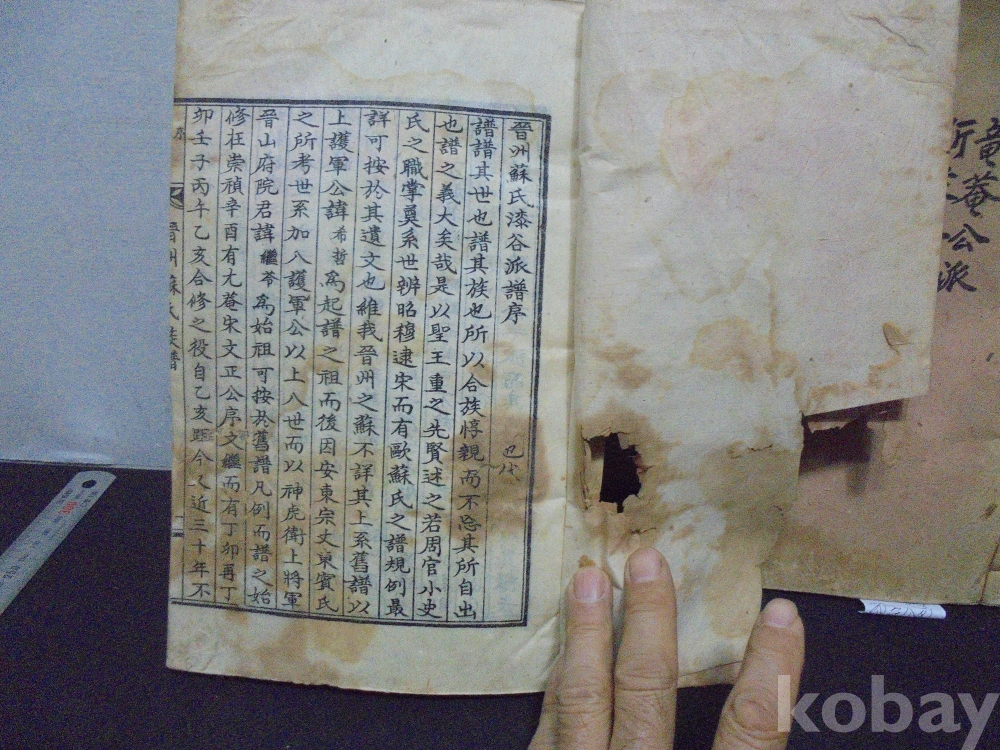 晉州蘇氏漆谷派譜序
譜譜其世也譜其族也所以合族惇親而不忘其所自出
也譜之義大矣哉是以聖王重之先賢述之若周官小史
氏之職掌奠系世辨昭穆逮宋而有歐蘇氏之譜規例最
詳可按於其遺文也維我晉州之蘇不詳其上系舊譜以
上護軍公諱希哲爲起譜之祖而後因安東宗丈東賓氏
之所考世系加八護軍公以上八世而以神虎衛上將軍
晉山府院君諱繼苓爲始祖可按於舊譜凡例而譜之始
修在崇禎辛酉有尤菴宋文正公序文繼而有丁卯再丁
卯壬子丙午乙亥合修之役自乙亥距今又近三十年不
晉州蘇氏族譜
菴公派
kobay